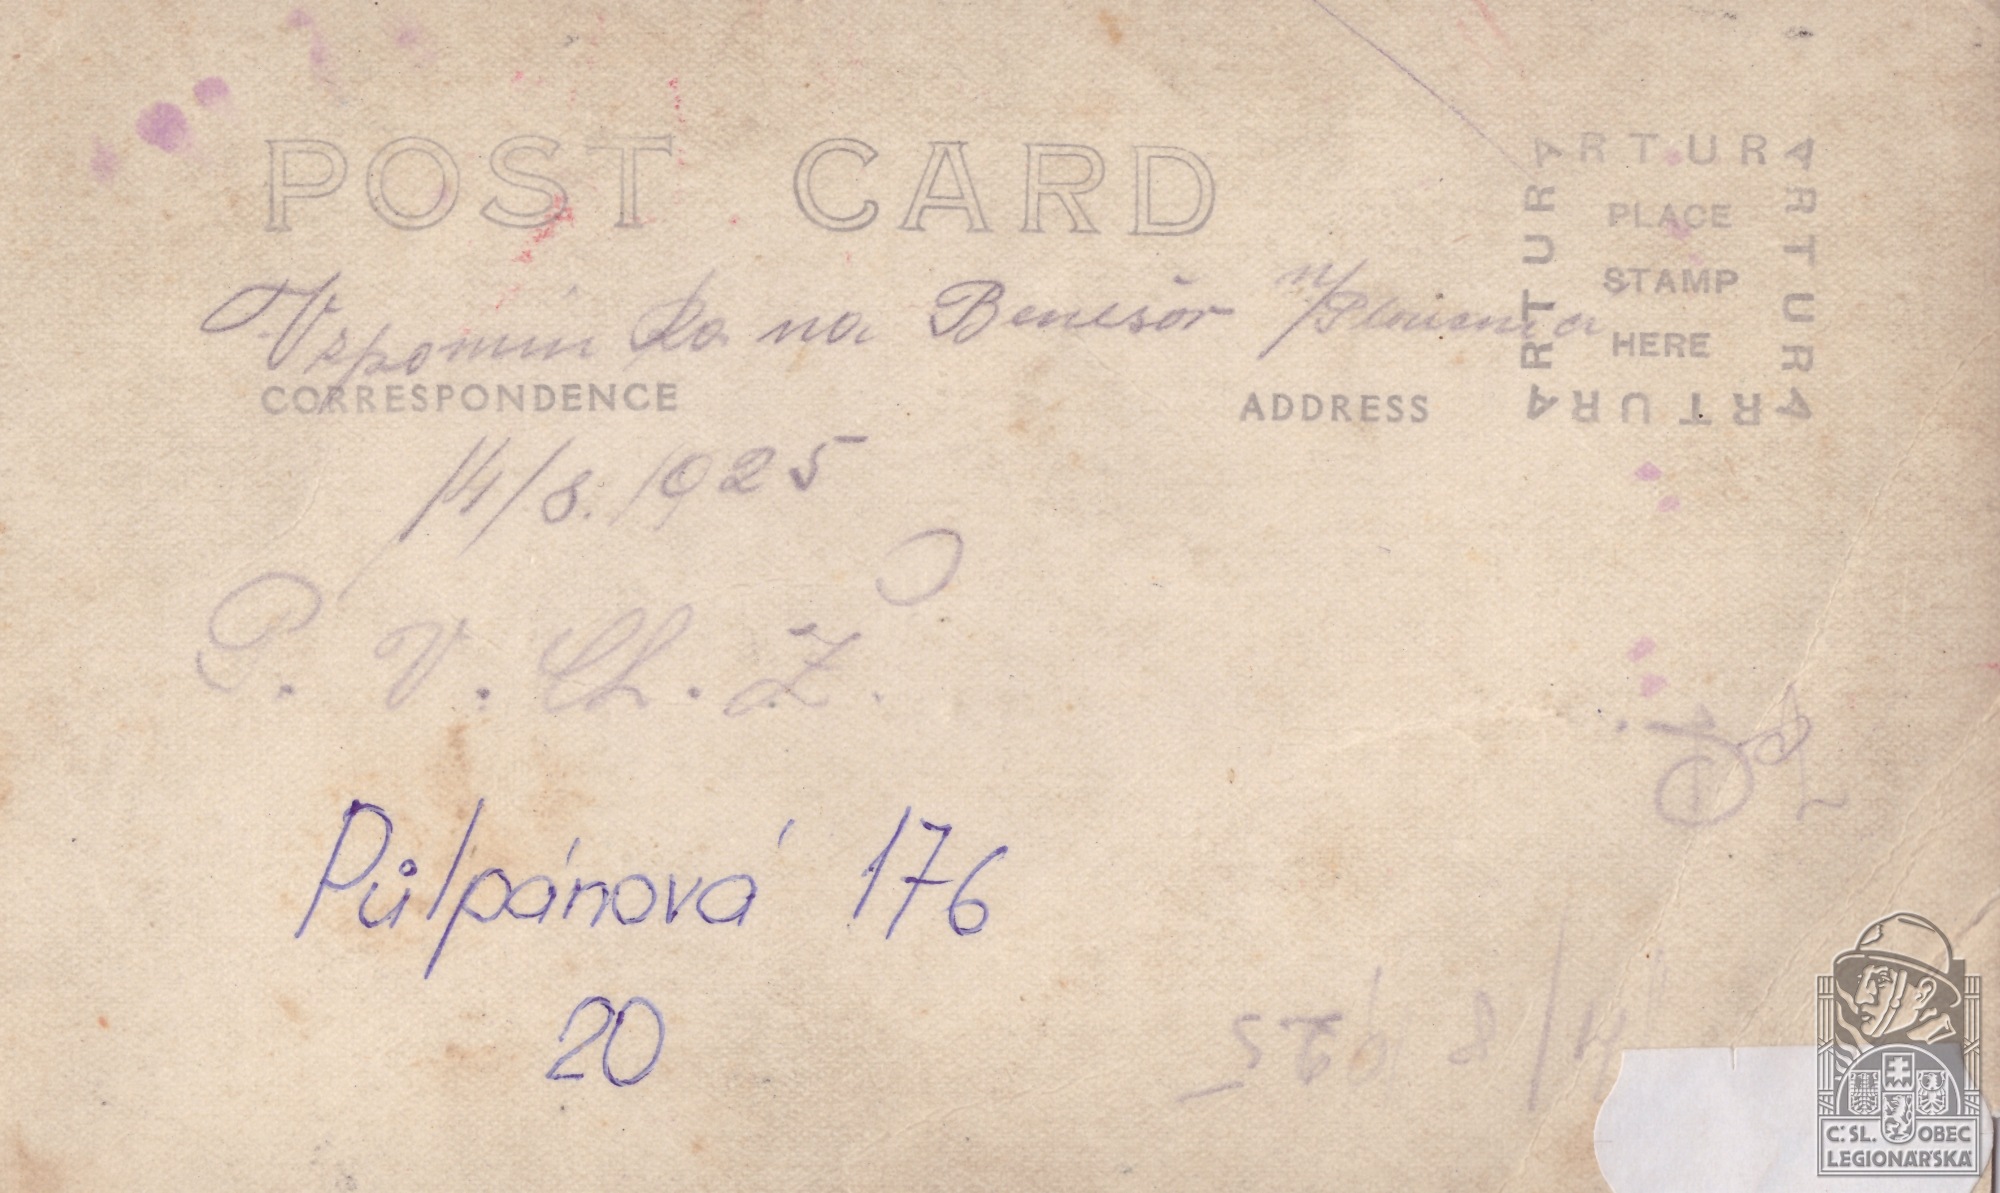 POST CARD
ARTURA
ARTURA
ARTURA
ARTURA
PLACE
STAMP
HERE
Vzpomínka na Benešov n/
CORRESPONDENCE
ADDRESS
14/8. 1925
P. V. Ch. Z.
Půlpánová 176
20
14/8 1925
Č.SL. OBEC
LEGIONÁŘSKÁ